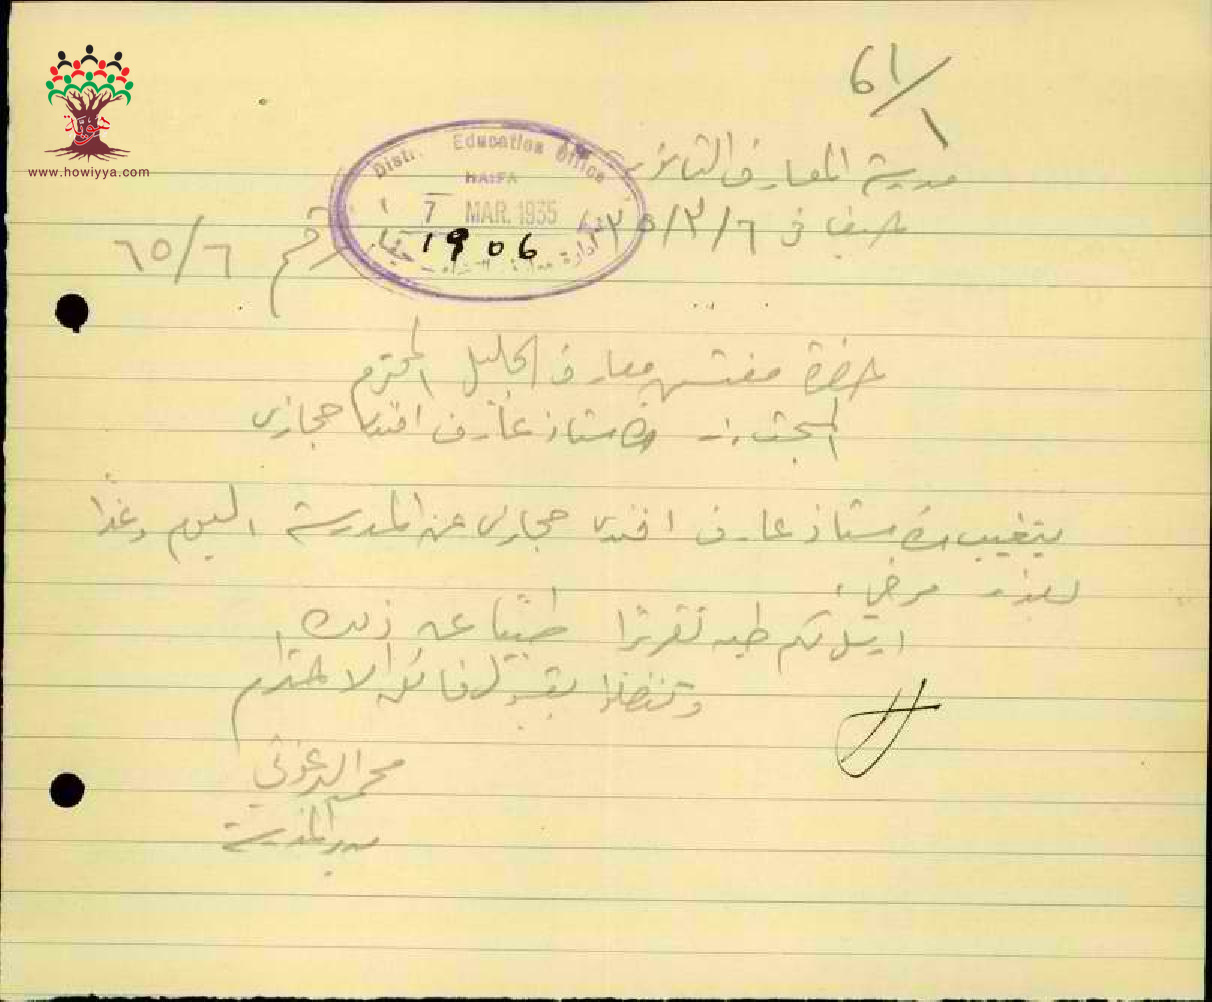 61/1
مدرسة المعارف الثانوية
صفد في ٦/٣/٣٥
رقم ٦٥/٦
Distr. Education Office
HAIFA
7 MAR. 1935
1906
www.howiyya.com
حضرة مفتش معارف الجليل المحترم
المبحث :- الاستاذ عارف افندي حجازي
يتغيب الاستاذ عارف افندي حجازي عن المدرسة اليوم وغدًا
لعذر مرضي
ارسل لكم طيه تقريرًا طبيًا عن ذلك
وتفضلوا بقبول فائق الاحترام
مدير المدرسة